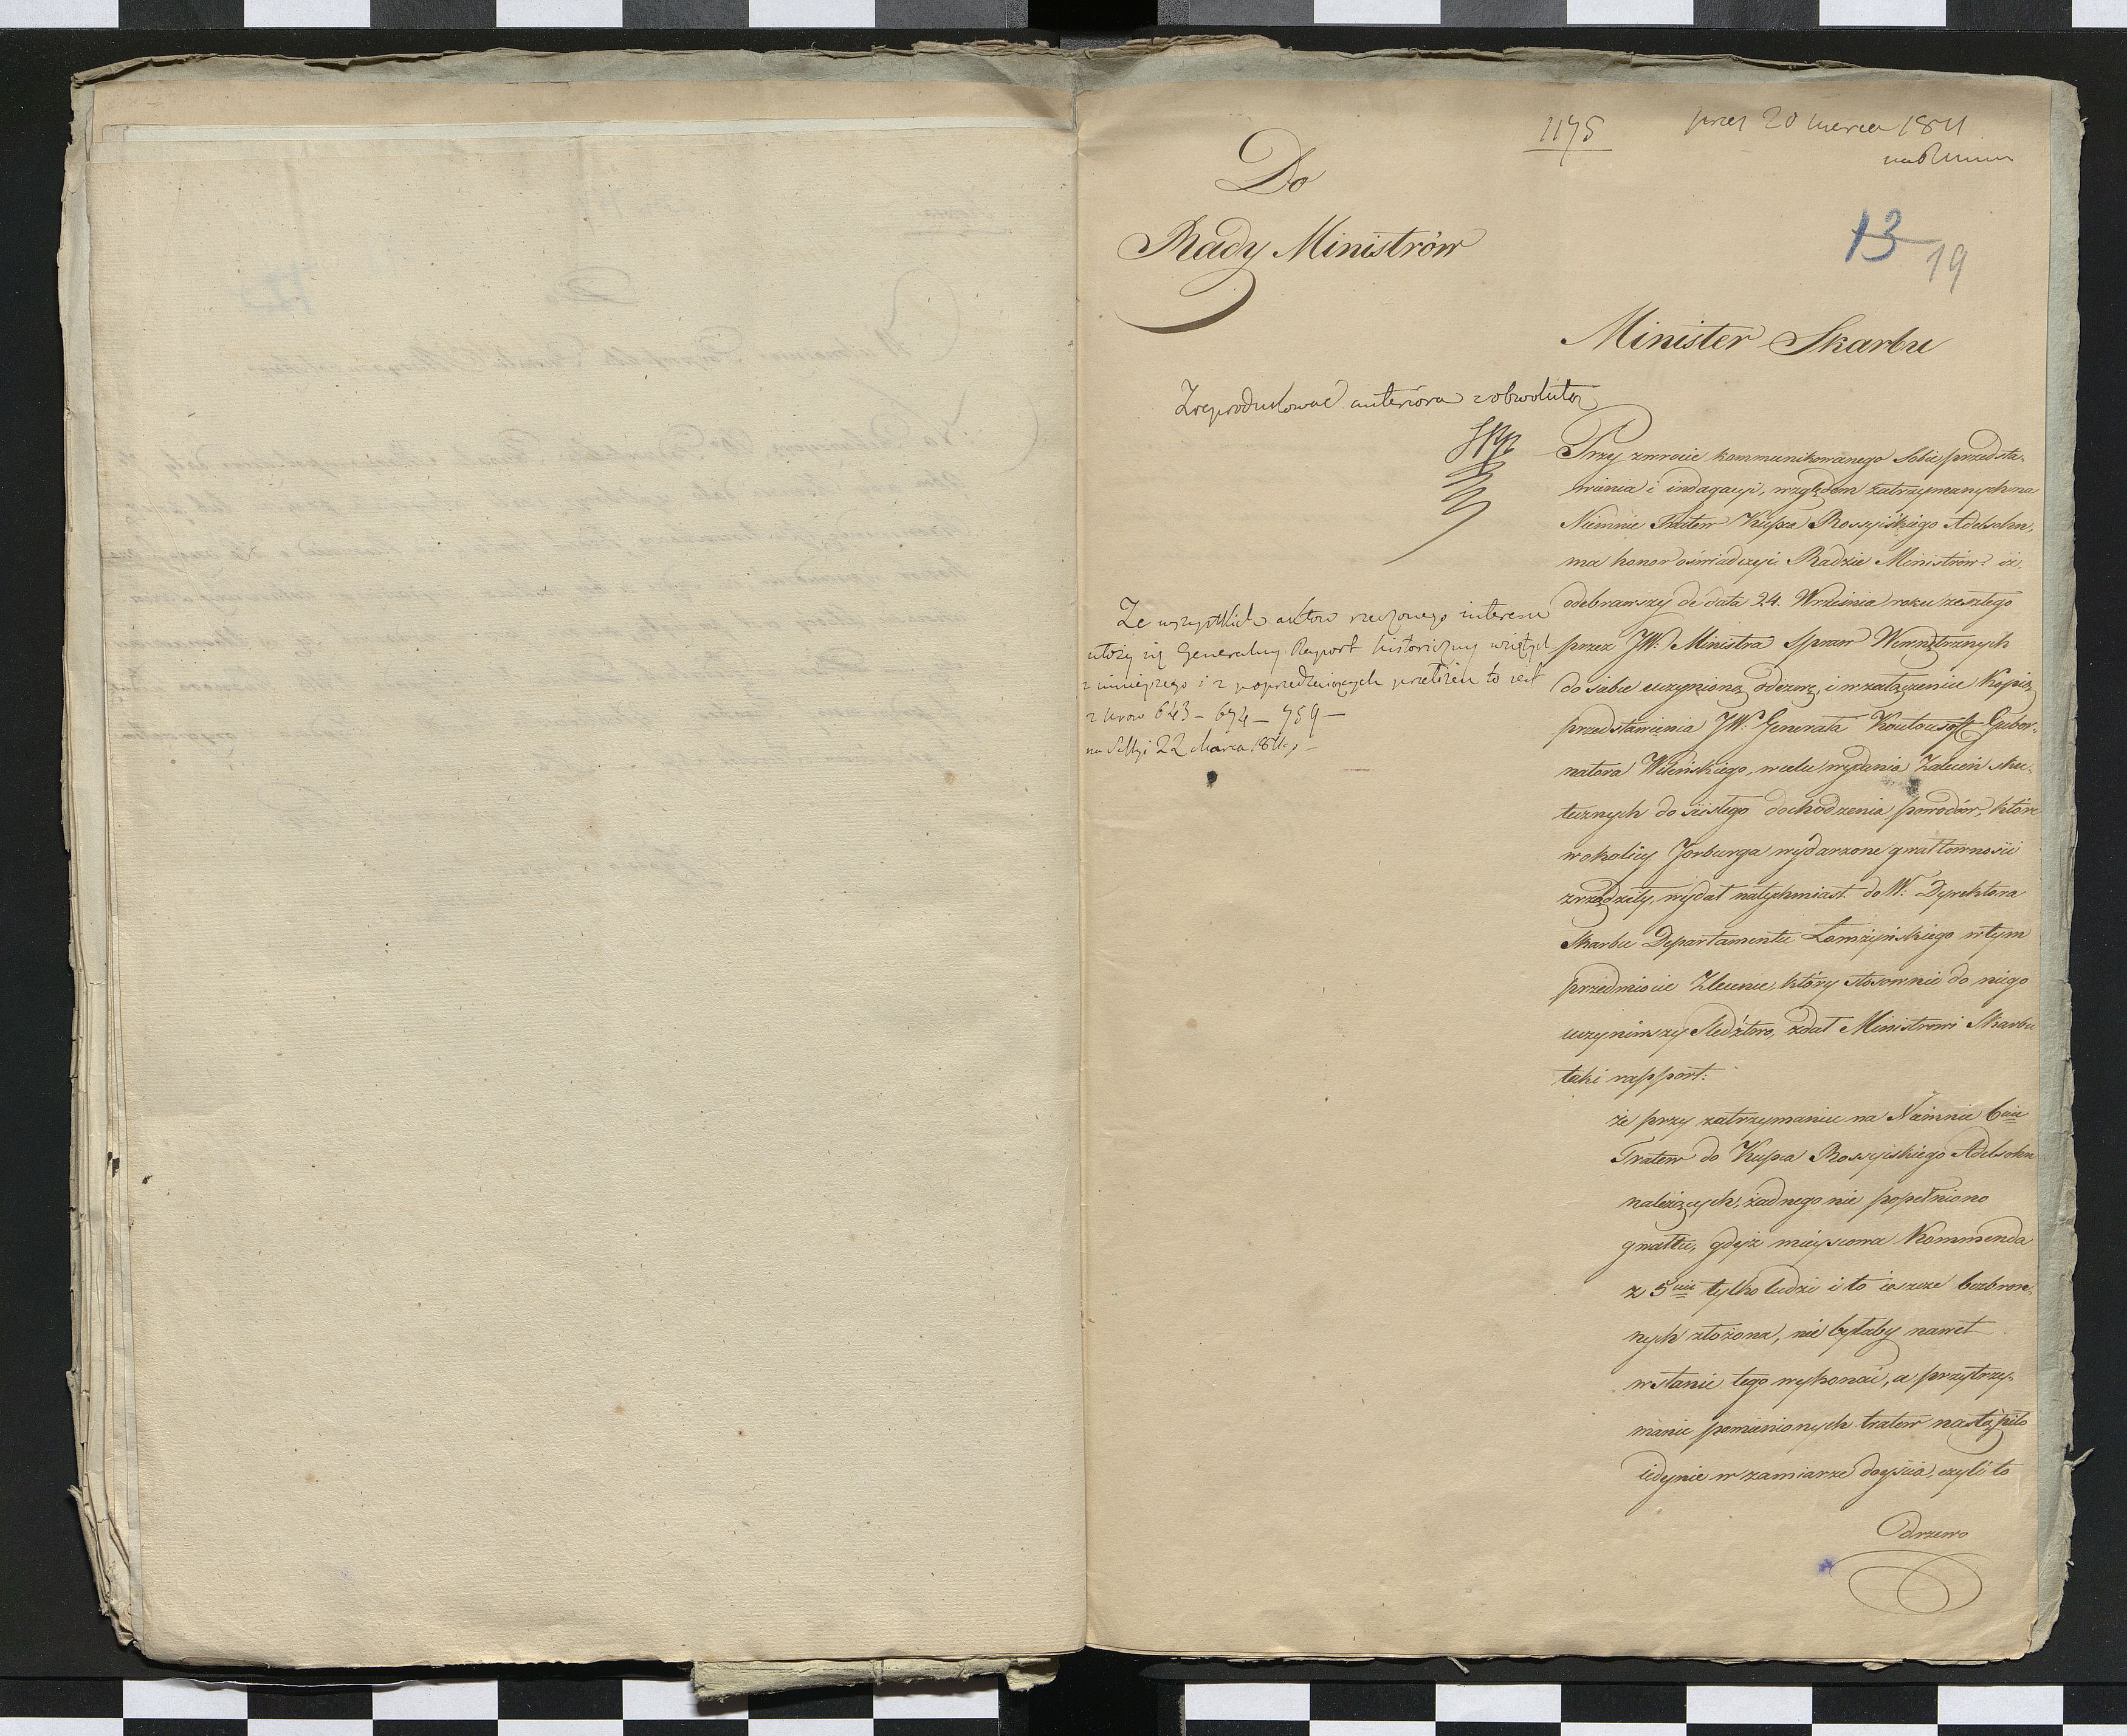 1175
20 marca 1811
Do
Rady Ministrów
13
19
Minister Skarbu
Zreprodukować anteriora z obwolutą
Przy zwrocie kommunikowanego sobie przedsta-
wienia i indagacyi, względem zatrzymanych na
Niemnie Tratew Kupca Rossyiskiego Adelsohn,
ma honor oświadczyć Radzie Ministrów: iż
odebrawszy de data 24. Września roku zeszłego
przez JW: Ministra Spraw Wewnętrznych
do siebie uczynioną odezwę, i w załączeniu Kopią
przedstawienia JW: Generała Koutousoff Guber-
natora Wileńskiego, w celu wydania Zaleceń sku-
tecznych do ścisłego dochodzenia powodów, które
w okolicy Jorburga wydarzone gwałtowności
zrządziły, wydał natychmiast do W: Dyrektora
Skarbu Departamentu Łomżyńskiego w tym
przedmiocie Zlecenie, który stosownie do niego
uczyniwszy Sledztwo, zdał Ministrowi Skarbu
taki rapport:
że przy zatrzymaniu na Niemnie 6ciu
Tratew do Kupca Rossyiskiego Adelsohn
należących, żadnego nie popełniono
gwałtu, gdyż mieyscowa Kommenda
z 5ciu tylko ludzi i to ieszcze bezbron-
nych złożona, nie byłaby nawet
w stanie tego wykonać, a przytrzy-
manie pomienionych tratew nastąpiło
iedynie w zamiarze doyścia, czyli to
drzewo
Ze wszystkich aktów rzeczonego interesu
ułoży się Generalny Raport historyczny wzięty
z ninieyszego i z poprzedzaiących to iest
z Nrów 643 – 674 – 759 –
na Sessyi 22 Marca 1811 –